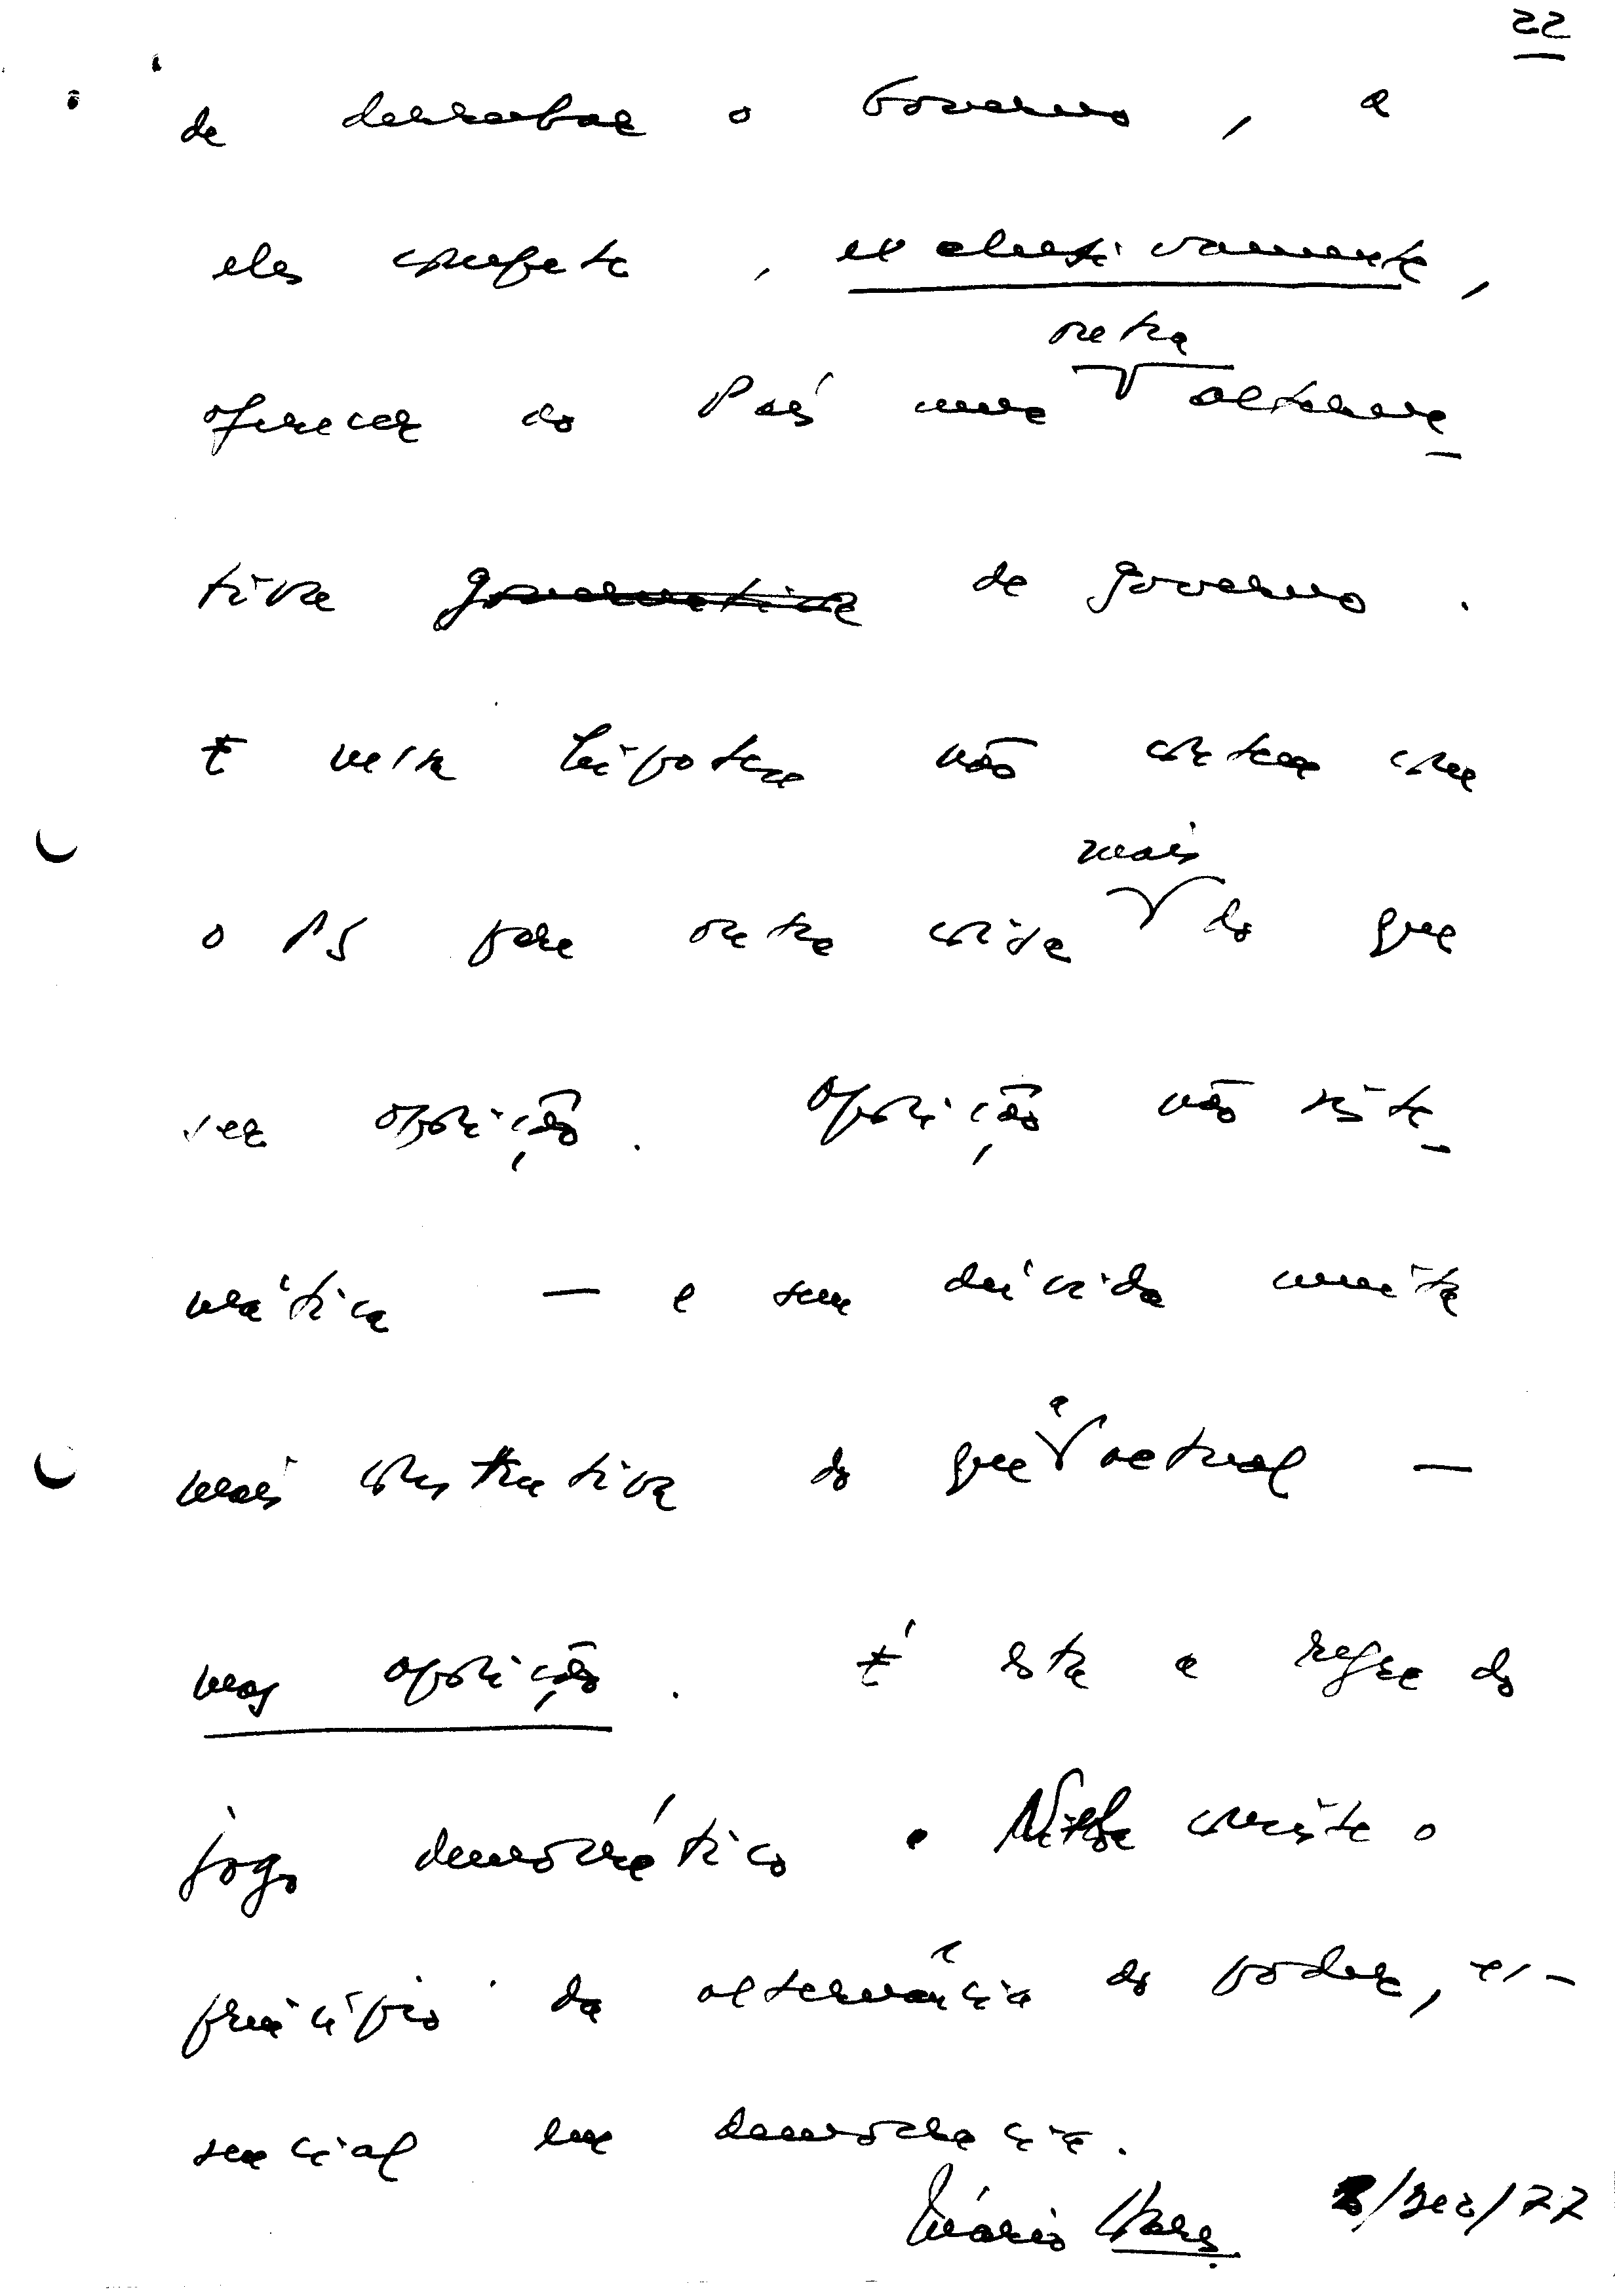 22
de derrubar o Governo, a
eles compete, exclusivamente,
outra
oferecer ao País uma alterna-
tiva governativa de governo.
E nessa hipótese não contem com
mais
o PS para outra coisa do que
ser oposição. Oposição não siste-
mática — e sem dúvida muito
a
mais construtiva do que actual —
mas oposição. É esta a regra do
jogo democrático. Nisto consiste o
princípio da alternância do poder, es-
sencial em democracia.
Mário Soares 8/Dez/77